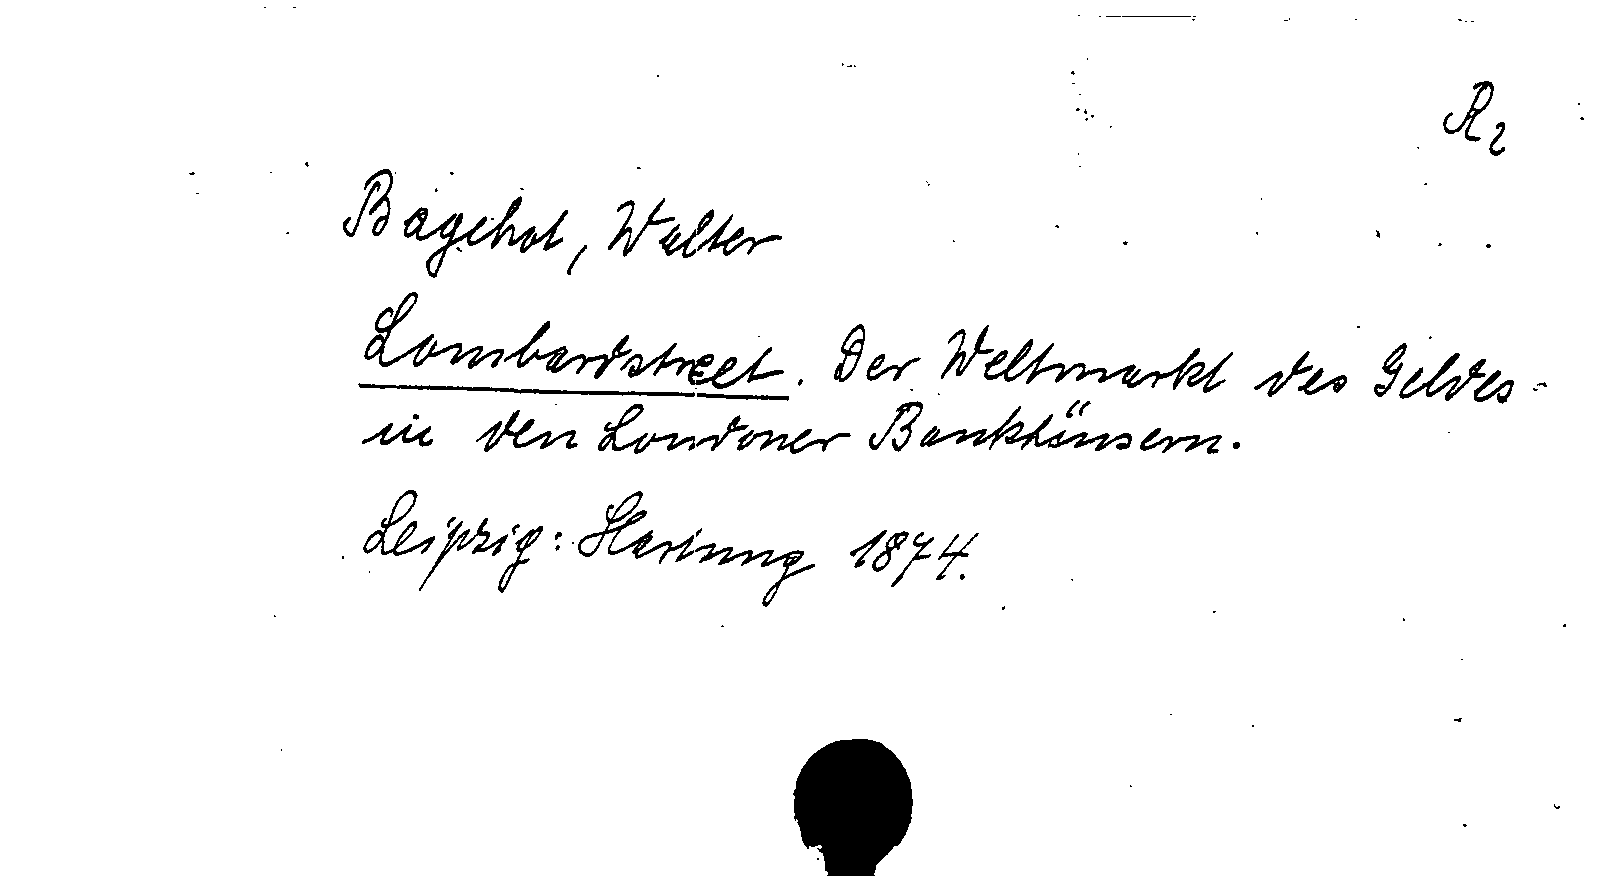 R2
Bagehot, Walter
Lombardstreet. Der Weltmarkt des Geldes
in den Londoner Bankhäusern.
Leipzig: Hartung 1874.